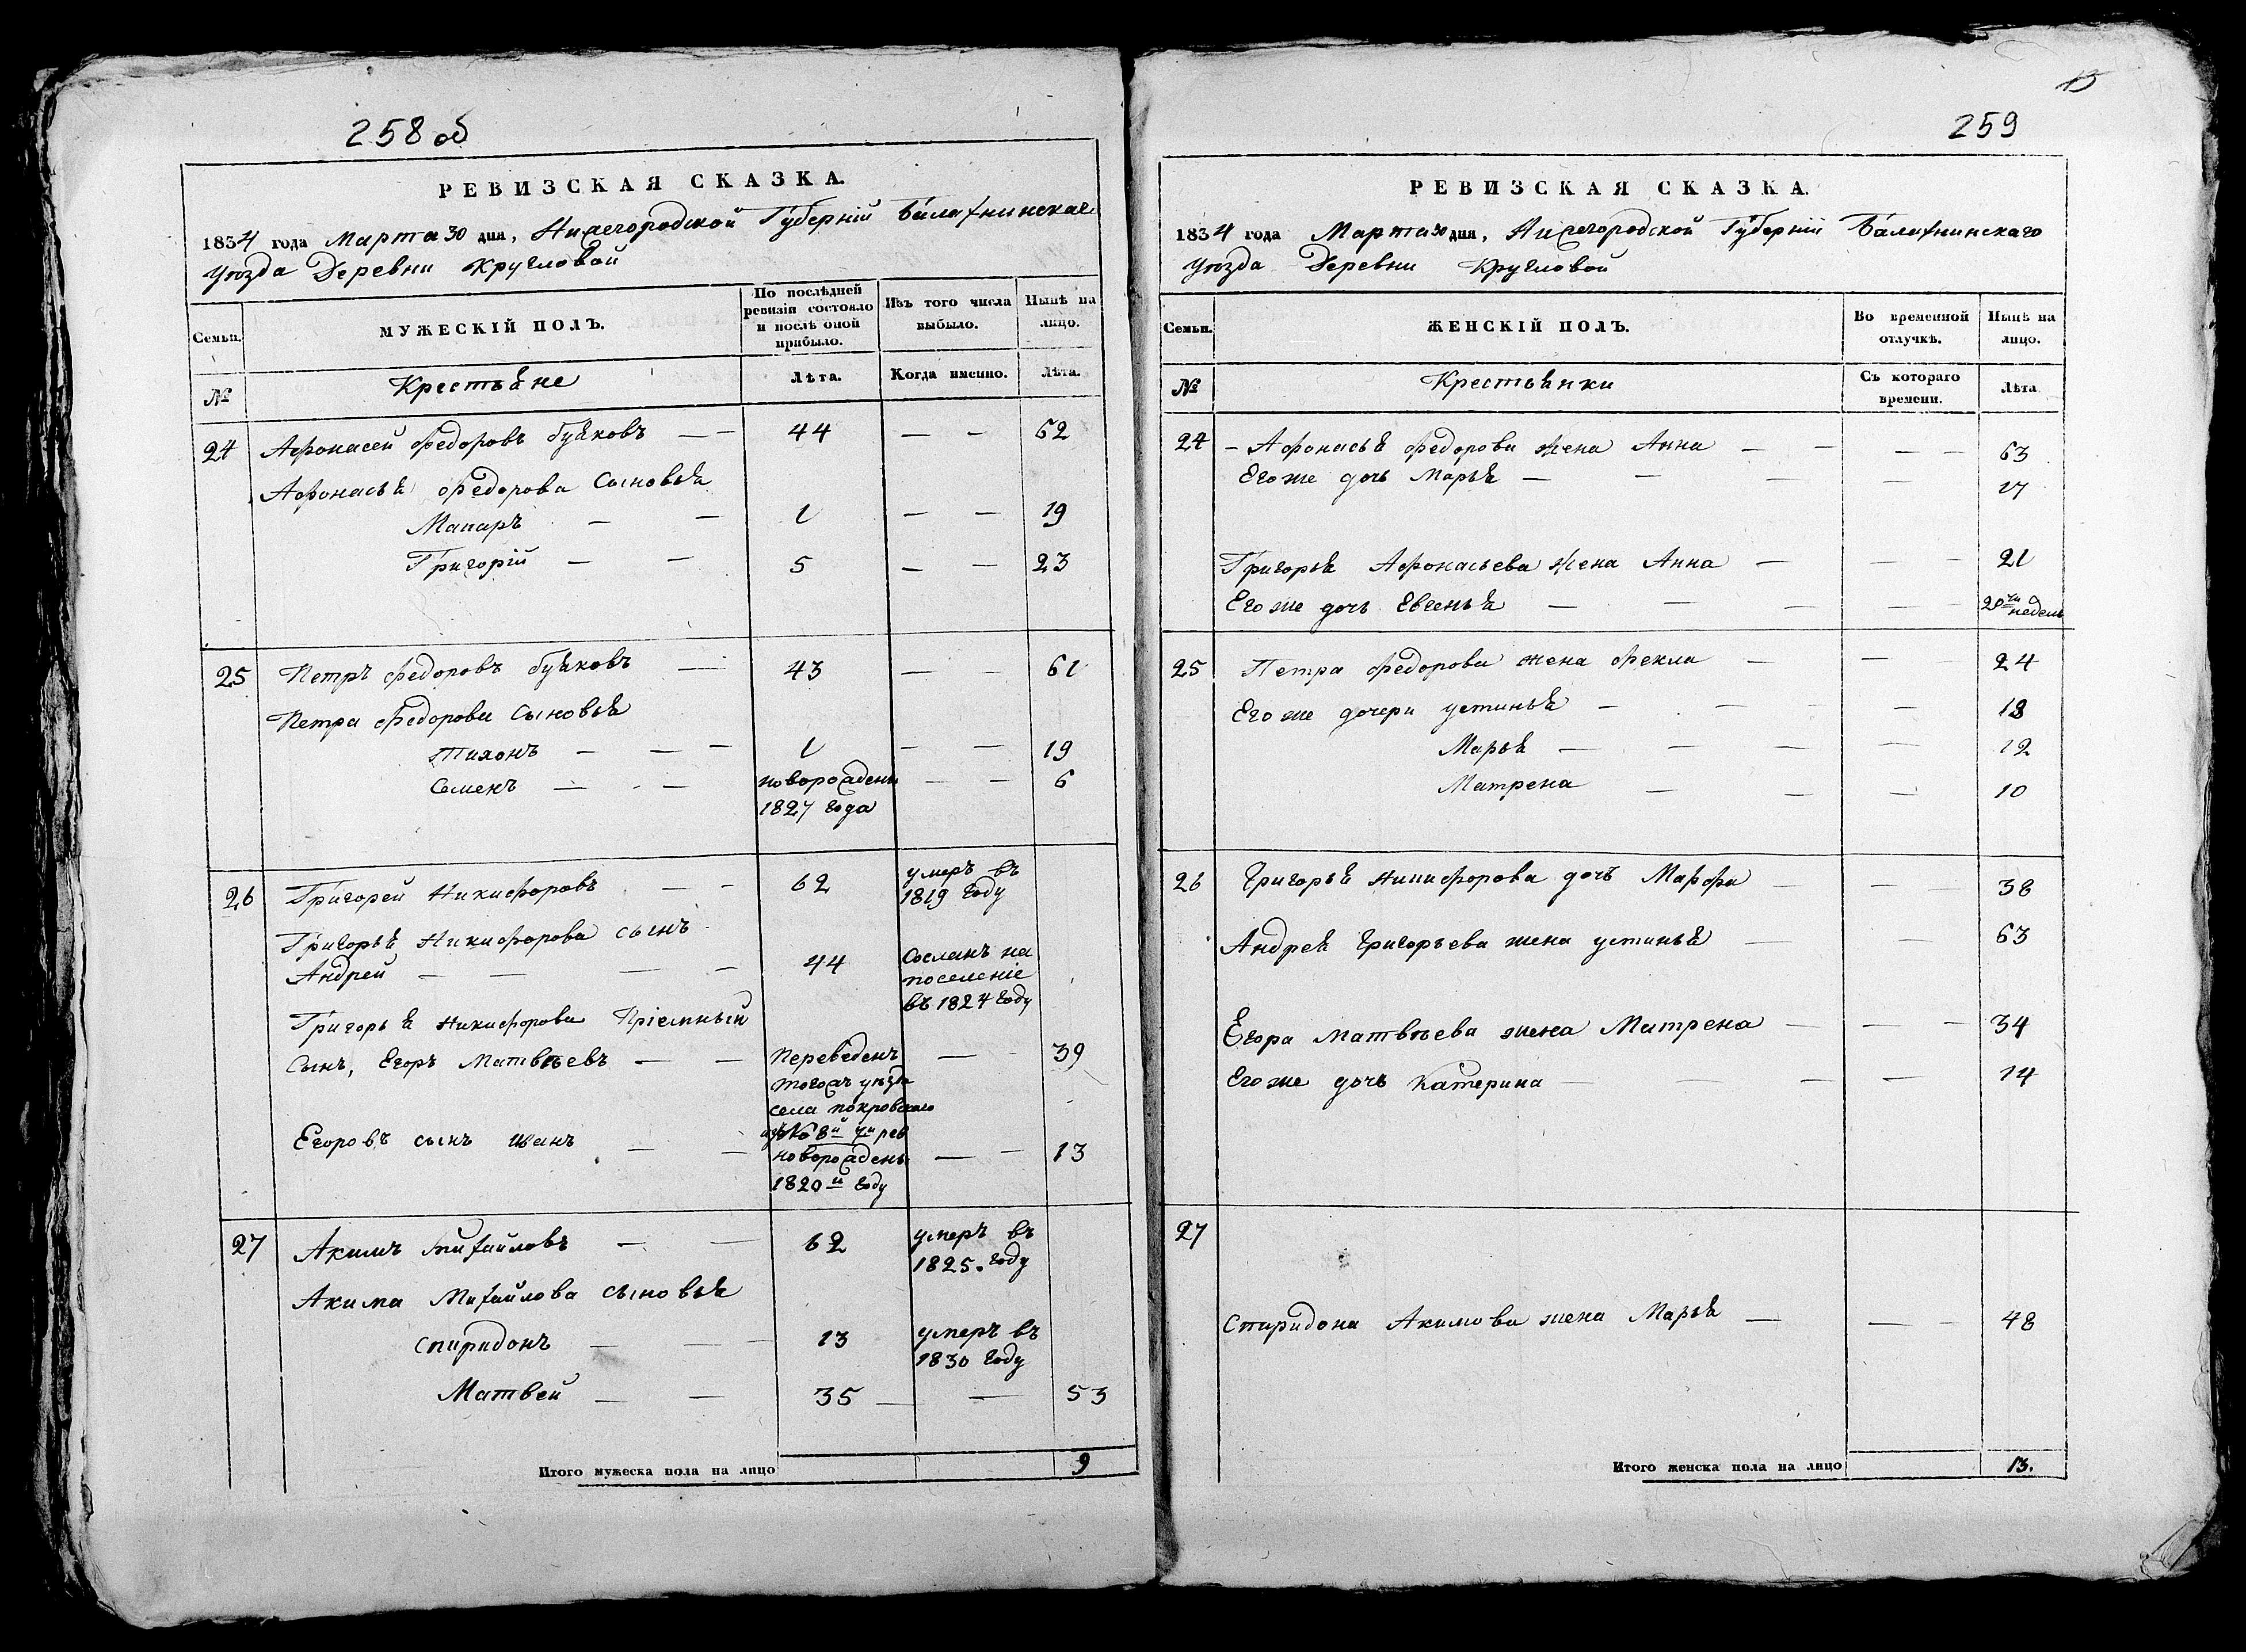 258 об
РЕВИЗСКАЯ СКАЗКА.
1834 года Марта 30 дня, Нижегородской Губерніи Балахнинскаго
уѣзда Деревни Кругловой
Семьи.
МУЖЕСКІЙ ПОЛЪ.
По послѣдней ревизіи состояло и послѣ оной прибыло.
Изъ того числа выбыло.
Нынѣ на лицо.
№
Крестьяне
Лѣта.
Когда именно.
Лѣта.
24 Афонасей Федоровъ буяковъ — — 44 — — 62
Афонасья Федорова Сыновья
Макаръ — — 1 — — 19
Григорій — — 5 — — 23
25 Петръ Федоровъ буяковъ — 43 — — 61
Петра Федорова Сыновья
Тихонъ — — — 1 — — 19
Семенъ — — — новорожденъ — — 6
1827 года
26 Григорей Никифоровъ — — 62 умеръ въ
1819 году
Григорья Никифорова сынъ
Андрей — — — — 44 Сосланъ на
поселеніе
въ 1824 году
Григорья Никифорова Пріемный
Сынъ, Егоръ Матвѣевъ — — Переведенъ — — 39
тогожъ уѣзда
села покровскаго
8й 7й рев
Егоровъ сынъ иванъ — — новорожденъ — — 13
1820й году
27 Акимъ Михайловъ — — 62 умеръ въ
1825. году
Акима Михайлова сыновья
Спиридонъ — — 13 умеръ въ
1830 году
Матвей — — 35 — — 53
Итого мужеска пола на лицо 9
13
259
РЕВИЗСКАЯ СКАЗКА.
1834 года Марта 30 дня, Нижегородской Губерніи Балахнинскаго
уѣзда Деревни Кругловой
Семьи.
ЖЕНСКІЙ ПОЛЪ.
Во временной отлучкѣ.
Нынѣ на лицо.
№
Крестьянки
Съ котораго времени.
Лѣта
24 – Афонасья Федорова жена Анна — — — — 63
Егоже дочь Марья — — — — 17
Григорья Афонасьева жена Анна — — — 21
Егоже дочь Евгенья — — — — — 20ти недель
25 Петра Федорова жена Фекла — — — 24
Егоже дочери устинья — — — — 18
Марья — — — — 12
Матрена — — — 10
26 Григорья Никифорова дочь Марфа — — — 38
Андрея григорьева жена устинья — — — 63
Егора Матвѣева жена Матрена — — — 34
Егоже дочь Катерина — — — — 14
27
Спиридона Акимова жена Марья — — — 48
Итого женска пола на лицо 13.